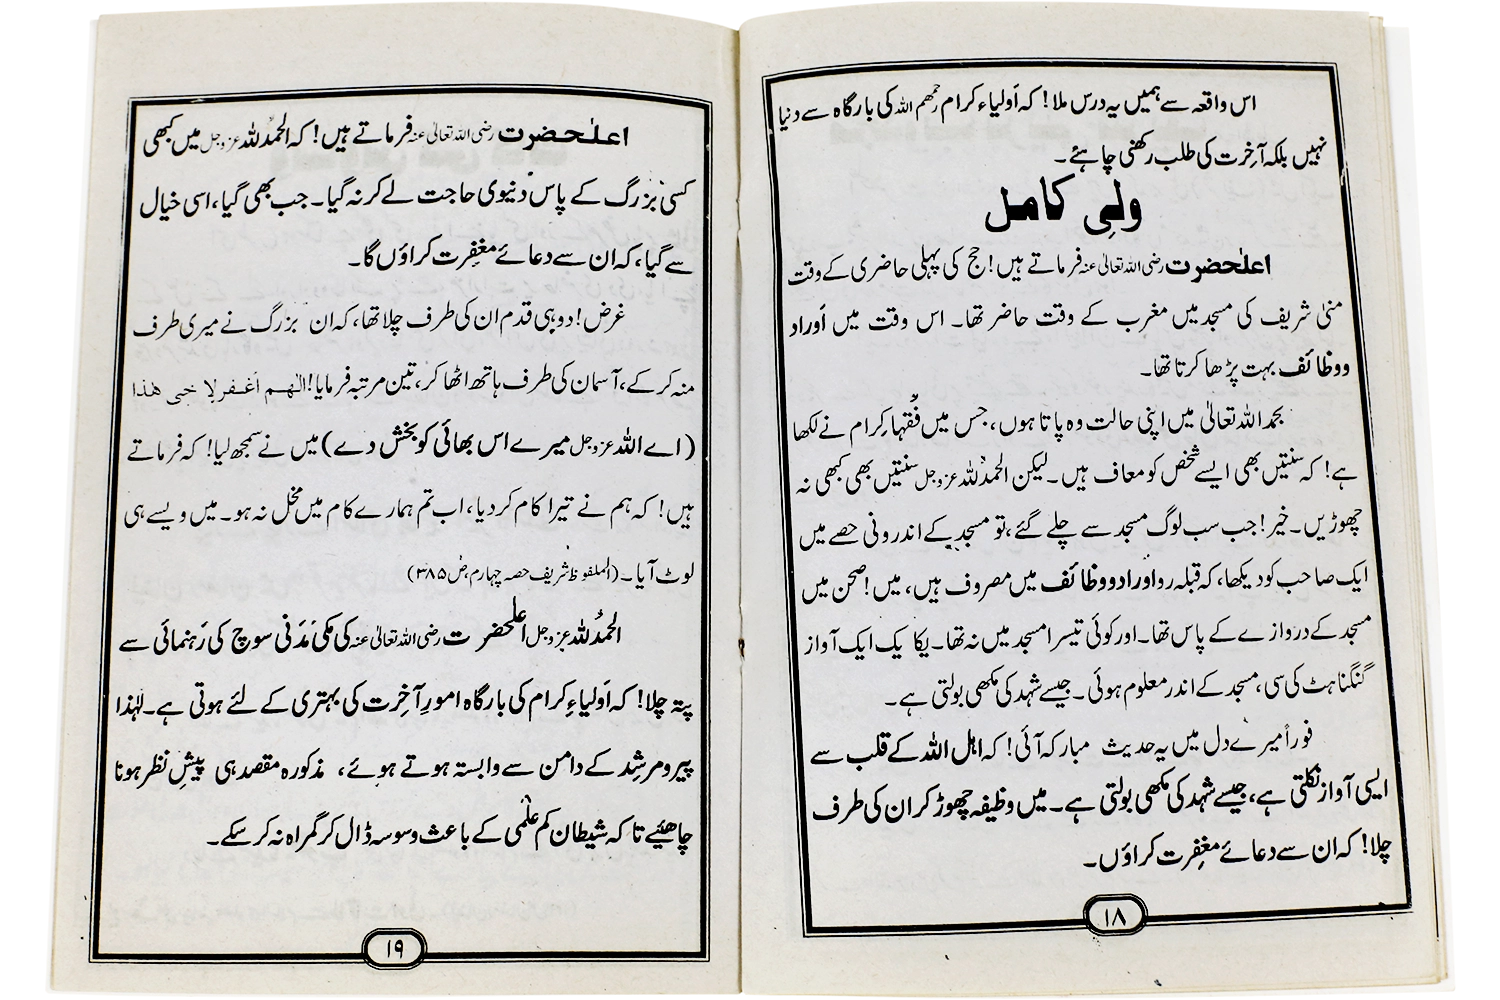 اس واقعہ سے ہمیں یہ درس ملا! کہ اَولیاء کرام رحمھم اللہ کی بارگاہ سے دنیا
نہیں بلکہ آخرت کی طلب رکھنی چاہئے۔
ولیِ کامل
اعلٰحضرت رضی اللہ تعالیٰ عنہ فرماتے ہیں! حج کی پہلی حاضری کے وقت
منیٰ شریف کی مسجد میں مغرب کے وقت حاضر تھا۔ اس وقت میں اَوراد
ووظائف بہت پڑھا کرتا تھا۔
بحمد اللہ تعالیٰ میں اپنی حالت وہ پاتا ہوں، جس میں فُقہاءِ کرام نے لکھا
ہے! کہ سنتیں بھی ایسے شخص کو معاف ہیں۔ لیکن الحمدُ للہ عزوجل سنتیں بھی کبھی نہ
چھوڑیں۔ خیر! جب سب لوگ مسجد سے چلے گئے، تو مسجد کے اندرونی حصے میں
ایک صاحب کو دیکھا، کہ قبلہ رو اوراد ووظائف میں مصروف ہیں، میں! صحن میں
مسجد کے دروازے کے پاس تھا۔ اور کوئی تیسرا مسجد میں نہ تھا۔ یکایک ایک آواز
گنگناہٹ کی سی، مسجد کے اندر معلوم ہوئی۔ جیسے شہد کی مکھی بولتی ہے۔
فوراً میرے دل میں یہ حدیث مبارکہ آئی! کہ اہل اللہ کے قلب سے
ایسی آواز نکلتی ہے، جیسے شہد کی مکھی بولتی ہے۔ میں وظیفہ چھوڑ کر ان کی طرف
چلا! کہ ان سے دعائے مغفِرت کراؤں۔
۱۸
اعلٰحضرت رضی اللہ تعالیٰ عنہ فرماتے ہیں! کہ الحمدُ للہ عزوجل میں کبھی
کسی بزرگ کے پاس دنیوی حاجت لے کر نہ گیا۔ جب بھی گیا، اسی خیال
سے گیا، کہ ان سے دعائے مغفِرت کراؤں گا۔
غرض! دو ہی قدم ان کی طرف چلا تھا، کہ ان بزرگ نے میری طرف
منہ کر کے، آسمان کی طرف ہاتھ اٹھا کر، تین مرتبہ فرمایا! اللٰھم اَغفرلِا خی ھٰذا
(اے اللہ عزوجل میرے اس بھائی کو بخش دے) میں نے سمجھ لیا! کہ فرماتے
ہیں! کہ ہم نے تیرا کام کر دیا، اب تم ہمارے کام میں مخل نہ ہو۔ میں ویسے ہی
لوٹ آیا۔ (الملفوظ شریف حصہ چہارم، ص ۳۸۵)
الحمدُ للہ عزوجل اعلٰحضرت رضی اللہ تعالیٰ عنہ کی مکی مَدَنی سوچ کی رَہنمائی سے
پتہ چلا! کہ اَولیاءِ کرام کی بارگاہ امورِ آخِرت کی بہتری کے لئے ہوتی ہے۔ لہٰذا
پیر و مرشِد کے دامن سے وابستہ ہوتے ہوئے، مذکورہ مقصد ہی پیشِ نظر ہونا
چاھئیے تا کہ شیطان کم علمی کے باعث وسوسہ ڈال کر گمراہ نہ کر سکے۔
۱۹